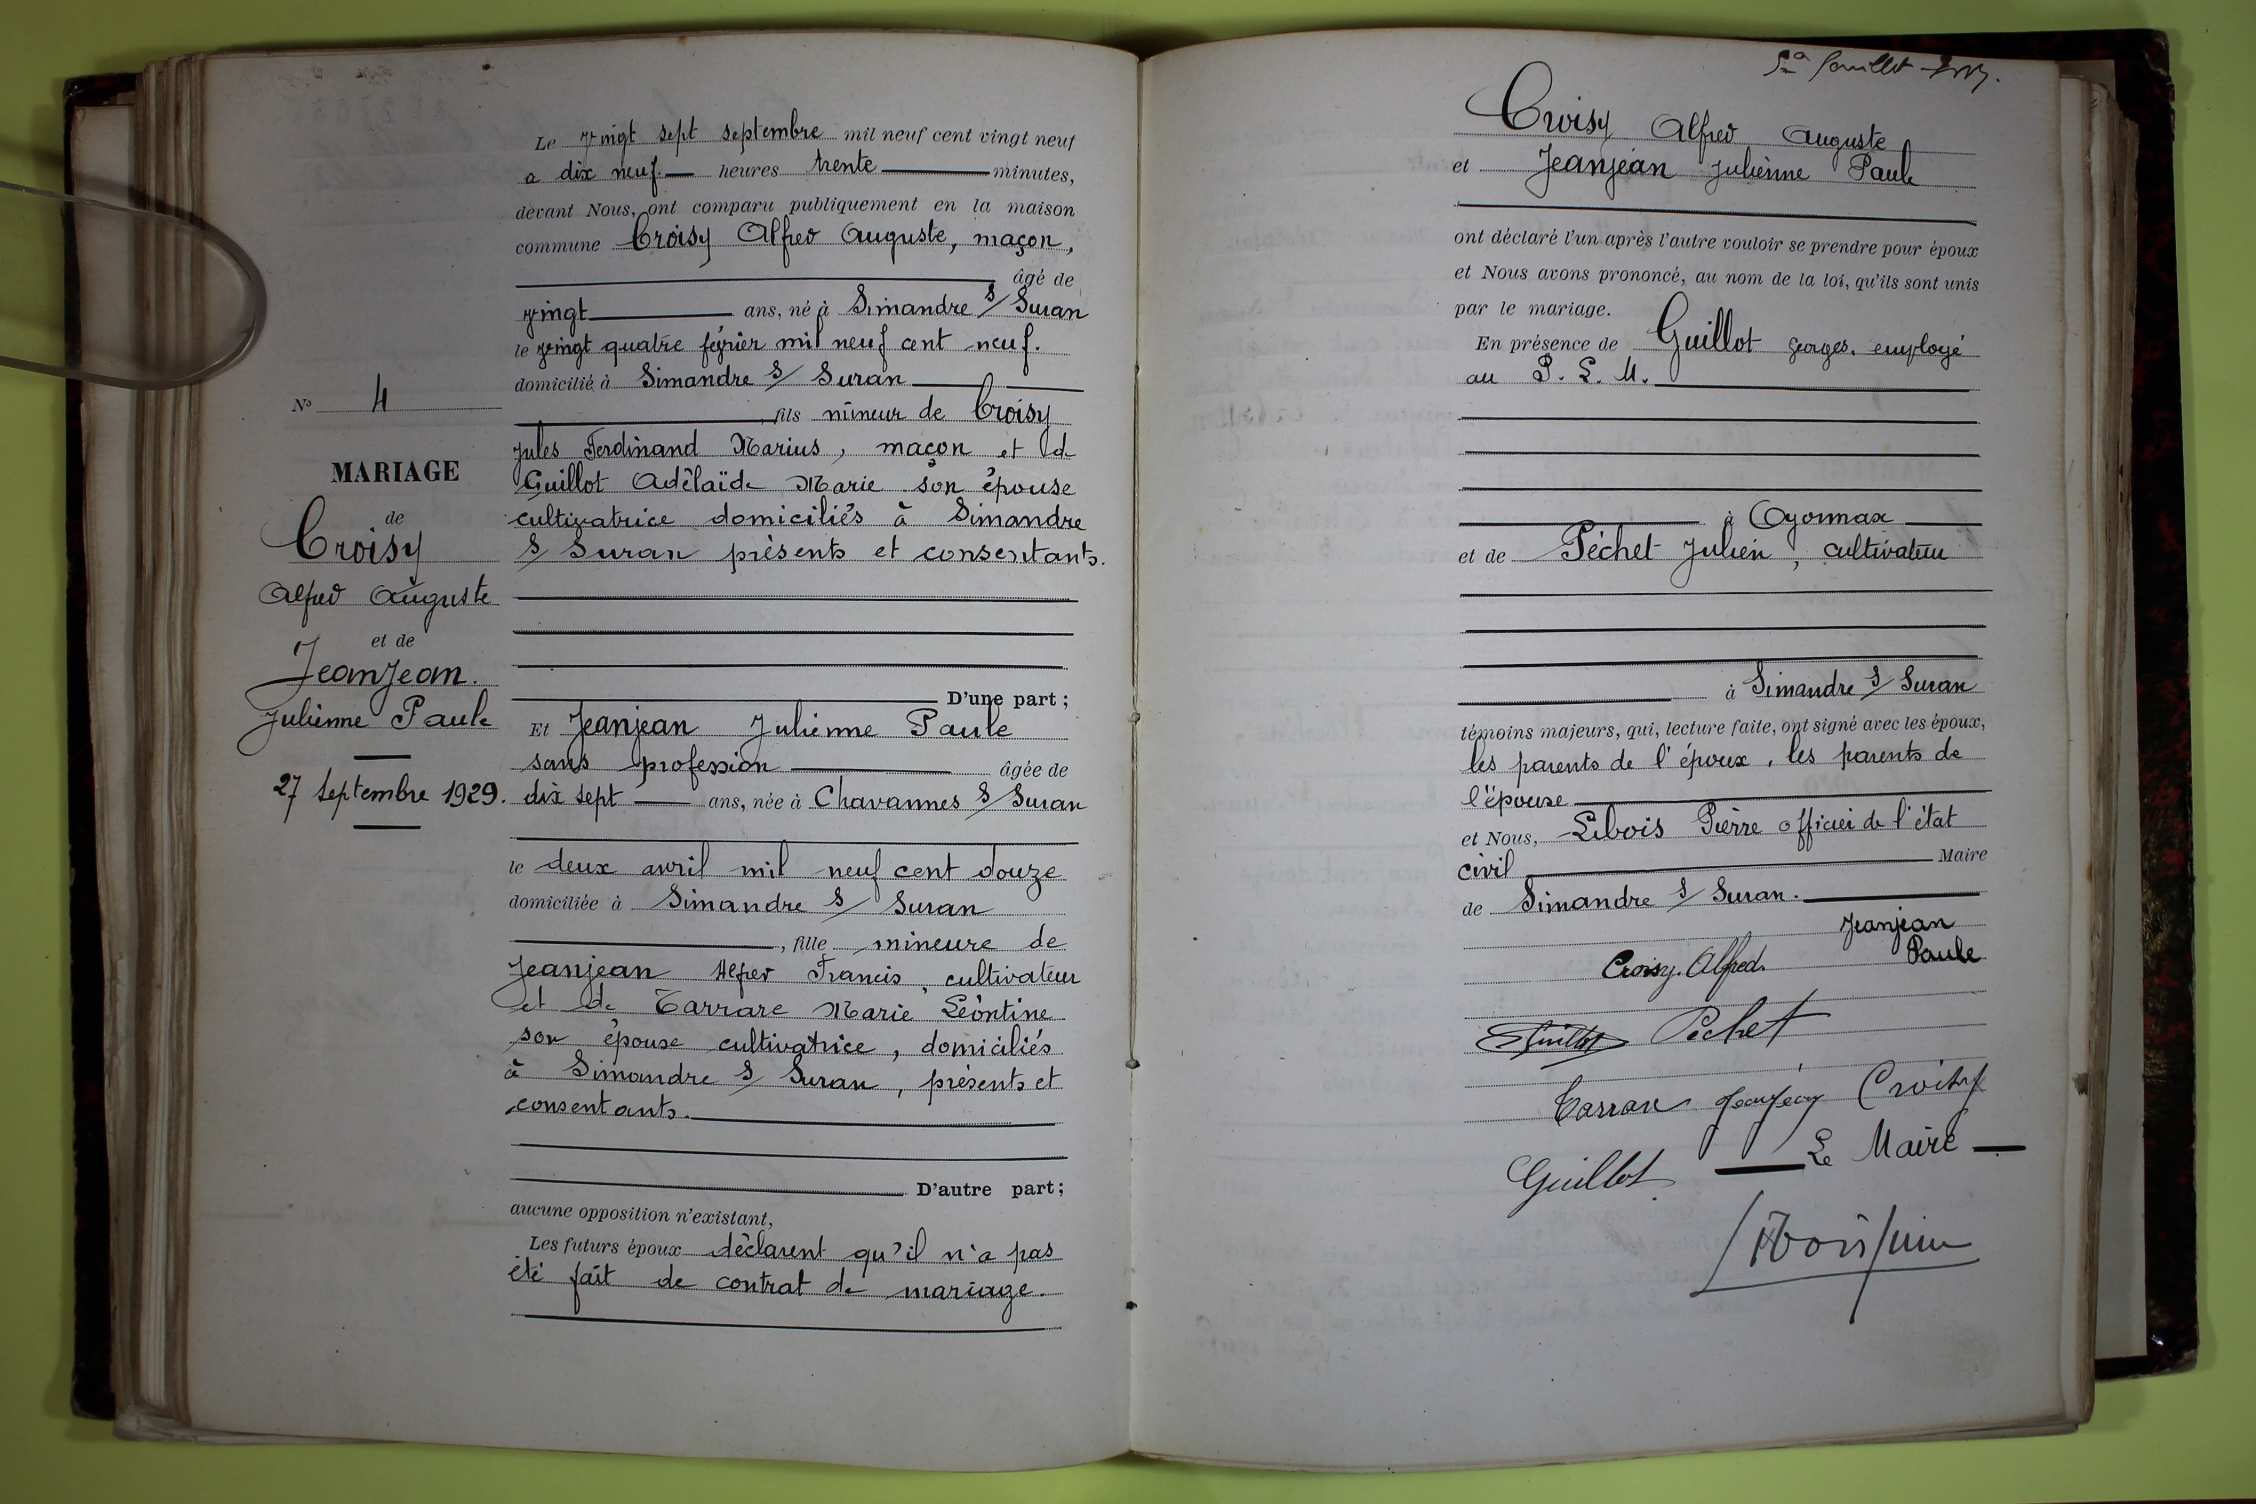 Le vingt sept septembre mil neuf cent vingt neuf
a dix neuf heures trente minutes,
devant Nous, ont comparu publiquement en la maison
commune Croisy Alfred Auguste, maçon,
âgé de
vingt ans, né à Simandre s/ Suran
le vingt quatre février mil neuf cent neuf.
domicilié à Simandre s/ Suran
fils mineur de Croisy
Jules Ferdinand Marius, maçon et de
Guillot Adélaïde Marie son épouse
cultivatrice domiciliés à Simandre
s/ Suran présents et consentants.
D'une part ;
Et Jeanjean Julienne Paule
sans profession âgée de
dix sept ans, née à Chavannes s/ Suran
le deux avril mil neuf cent douze
domiciliée à Simandre s/ Suran
, fille mineure de
Jeanjean Alfred Francis, cultivateur
et de Tarrare Marie Léontine
son épouse cultivatrice, domiciliés
à Simandre s/ Suran, présents et
consentants.
D'autre part ;
aucune opposition n'existant,
Les futurs époux déclarent qu'il n'a pas
été fait de contrat de mariage.
No 4
MARIAGE
de
Croisy
Alfred Auguste
et de
Jeanjean.
Julienne Paule
27 Septembre 1929.
Croisy Alfred Auguste
et Jeanjean Julienne Paule
ont déclaré l'un après l'autre vouloir se prendre pour époux
et Nous avons prononcé, au nom de la loi, qu'ils sont unis
par le mariage.
En présence de Guillot Georges, employé
au P. L. M.
à Oyonnax
et de Péchet Julien, cultivateur
à Simandre s/ Suran
témoins majeurs, qui, lecture faite, ont signé avec les époux,
les parents de l'époux, les parents de
l'épouse
et Nous, Lebois Pierre officier de l'état
civil Maire
de Simandre s/ Suran.
Jeanjean
Paule
Croisy. Alfred.
Guillot Péchet
Tarrare Jeanjean Croisy
Guillot Le Maire